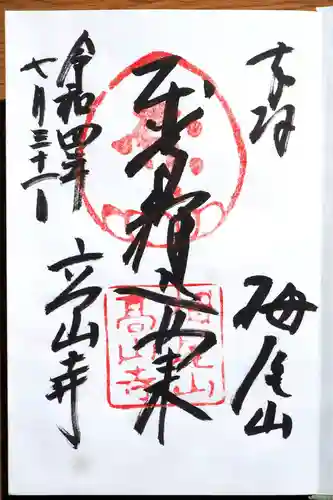 奉拝
栂尾山
釋迦如来
高山寺
令和四年
七月三十一日
栂尾山
高山寺